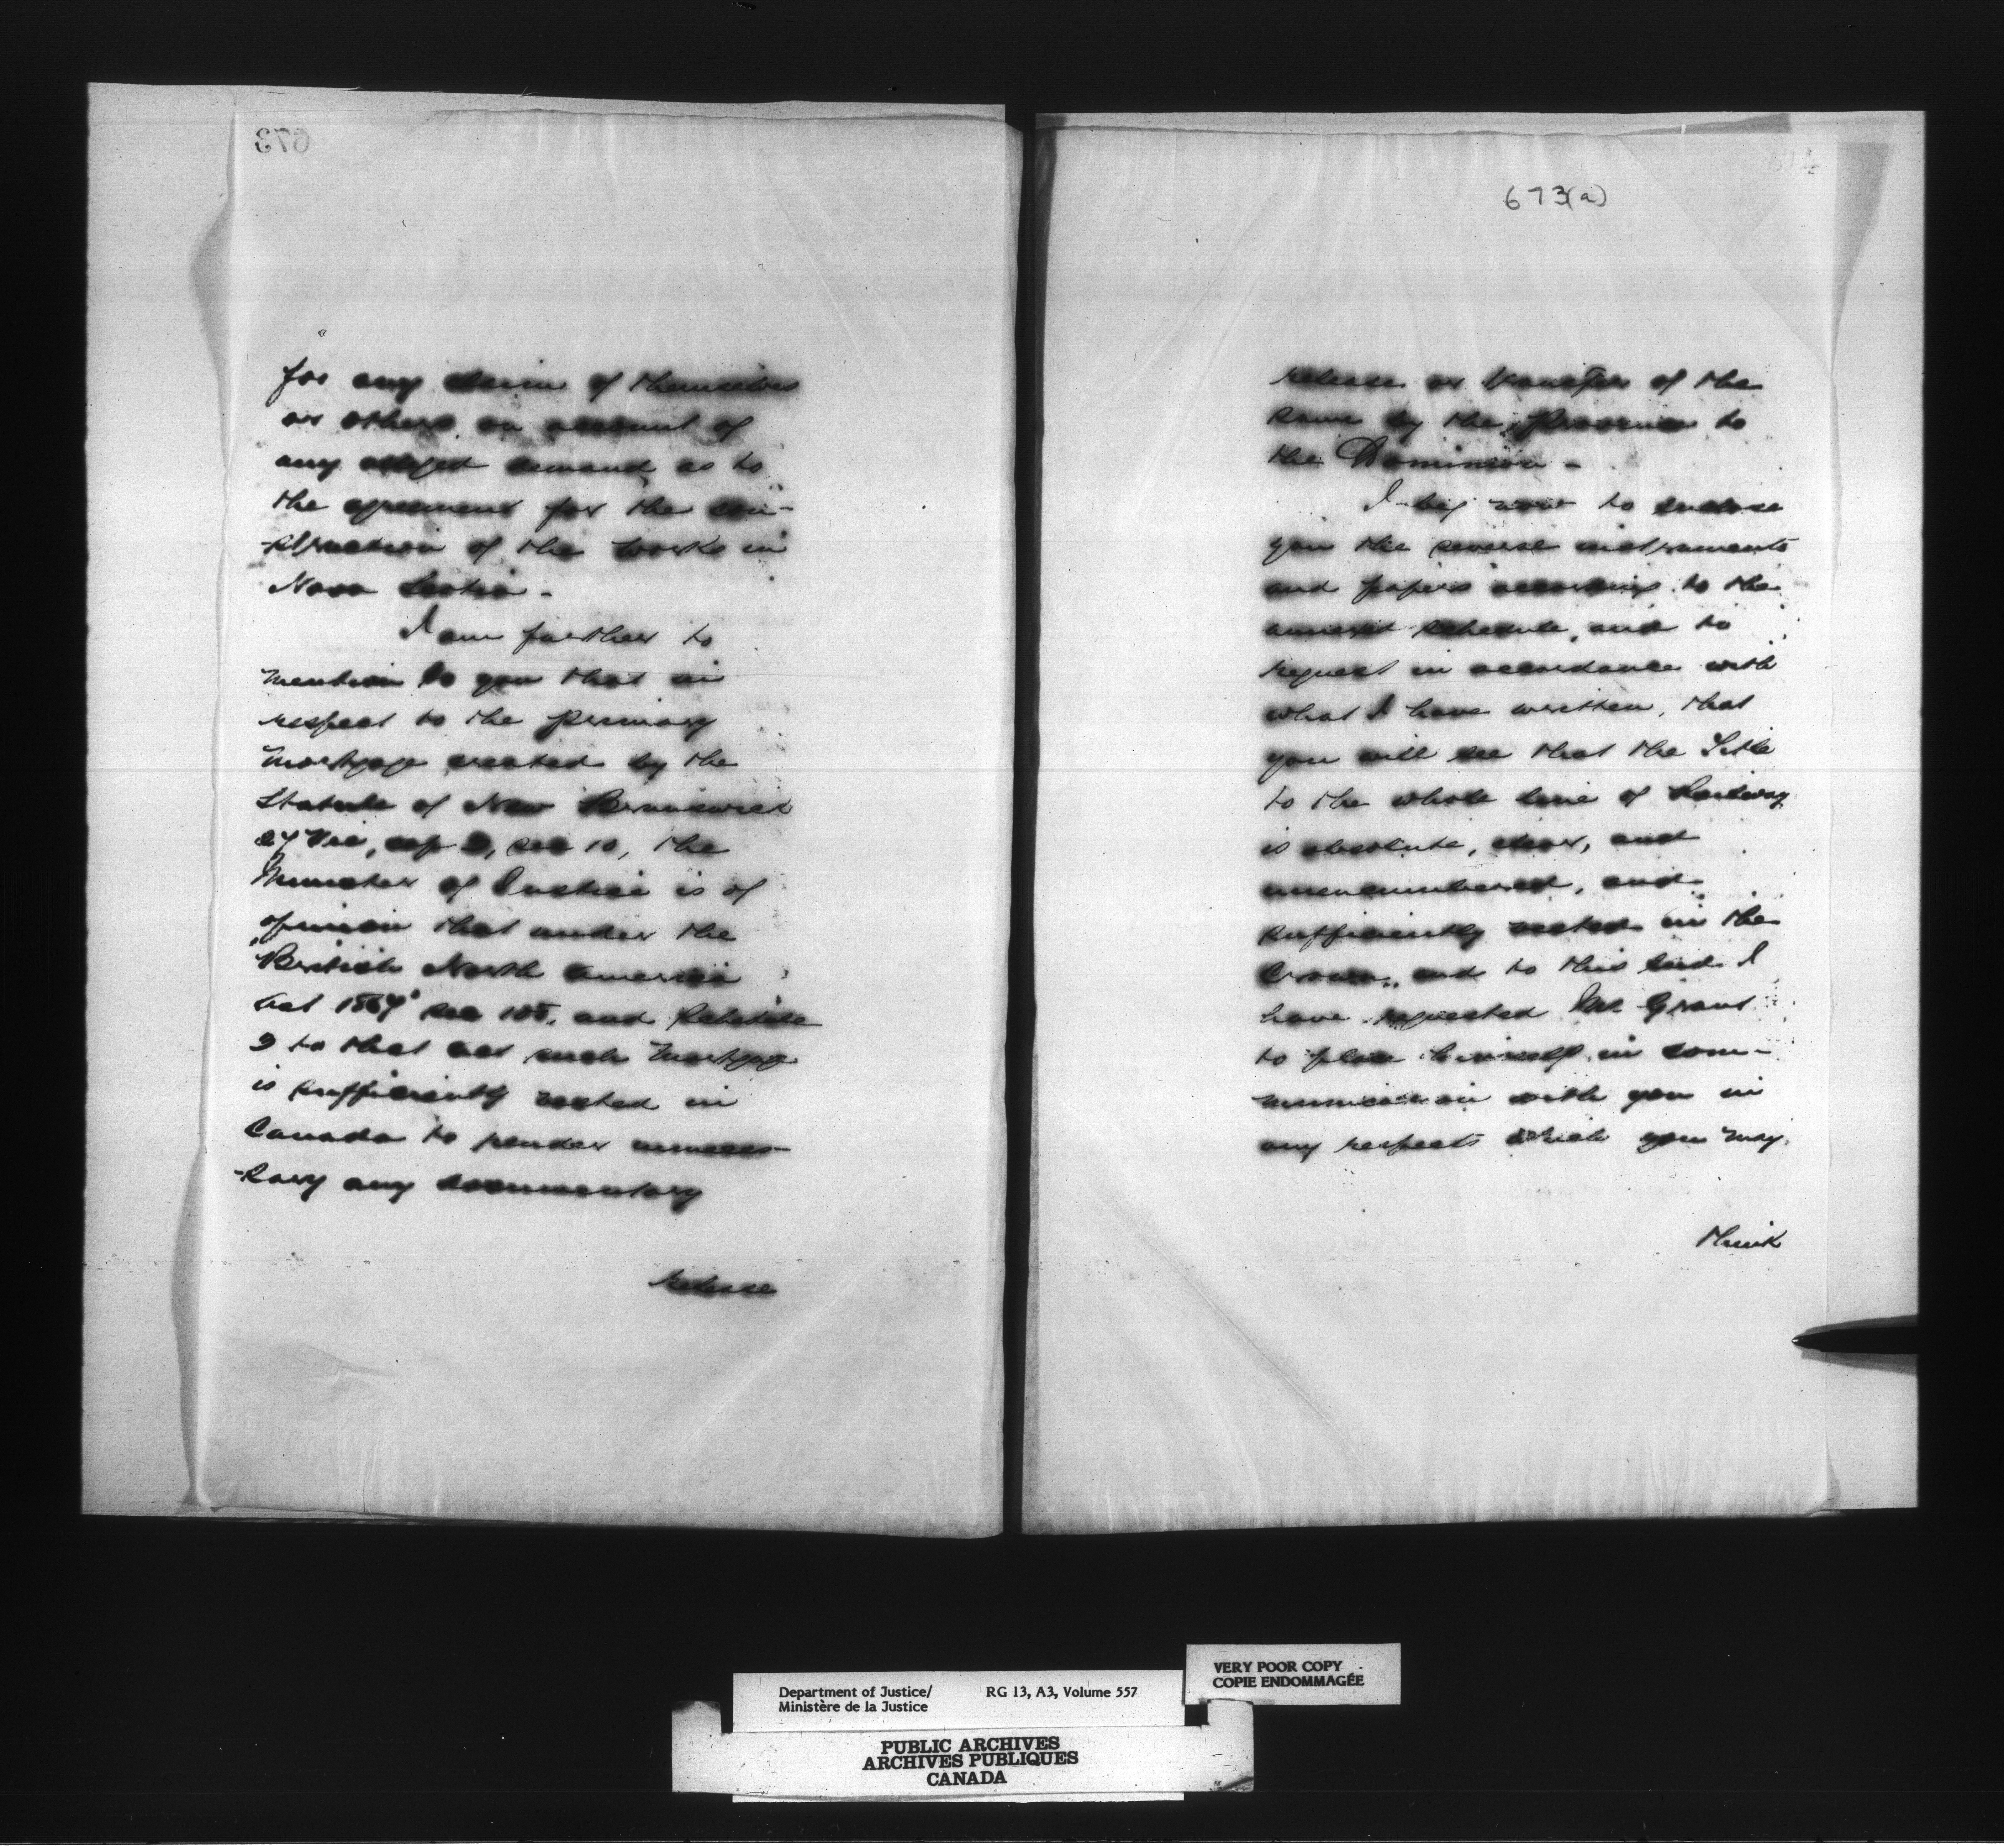 673
for any claim of themselves
or others on account of
any alleged demand as to
the agreement for the con-
-struction of the works in
Nova Scotia -
I am further to
mention to you that in
respect to the primary
mortgage created by the
Statute of New Brunswick
27 Vic, cap 3, sec 10, the
Minister of Justice is of
opinion that under the
British North America
Act 1867 sec 108, and Schedule
3 to that act such mortgage
is sufficiently vested in
Canada to render unneces-
-sary any documentary
release
673(a)
release or transfer of the
same by the Province to
the Dominion -
I beg now to enclose
you the several instruments
and papers according to the
annexed schedule, and to
request in accordance with
what I have written, that
you will see that the Title
to the whole line of Railway
is absolute, clear, and
unencumbered, and
sufficiently vested in the
Crown, and to this end I
have requested Mr Grant
to place himself in com-
munication with you in
any respects which you may
think
Department of Justice/
Ministère de la Justice
RG 13, A3, Volume 557
VERY POOR COPY
COPIE ENDOMMAGÉE
PUBLIC ARCHIVES
ARCHIVES PUBLIQUES
CANADA